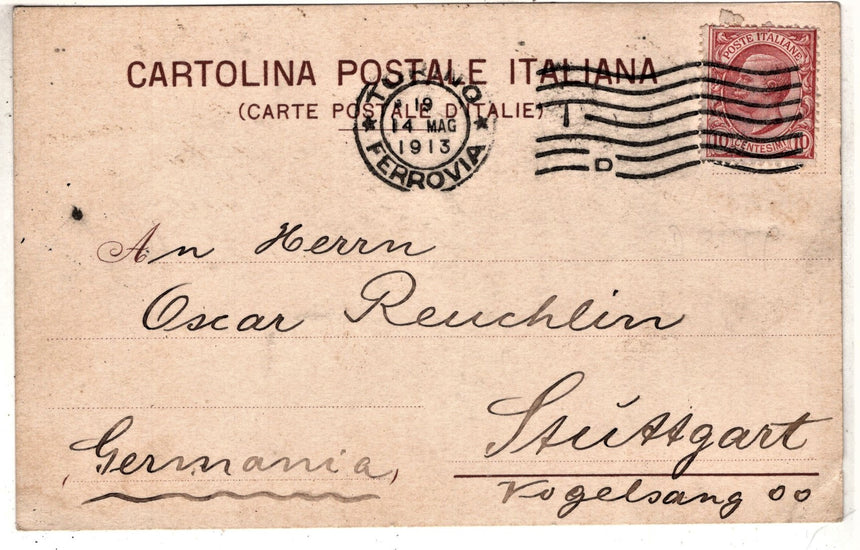 CARTOLINA POSTALE ITALIANA
(CARTE POSTALE D'ITALIE)
TORINO
19
14 MAG
1913
FERROVIA
D
POSTE ITALIANE
10 CENTESIMI 10
An Herrn
Oscar Reuchlin
Stúttgart
(Germania)
Vogelsang 00